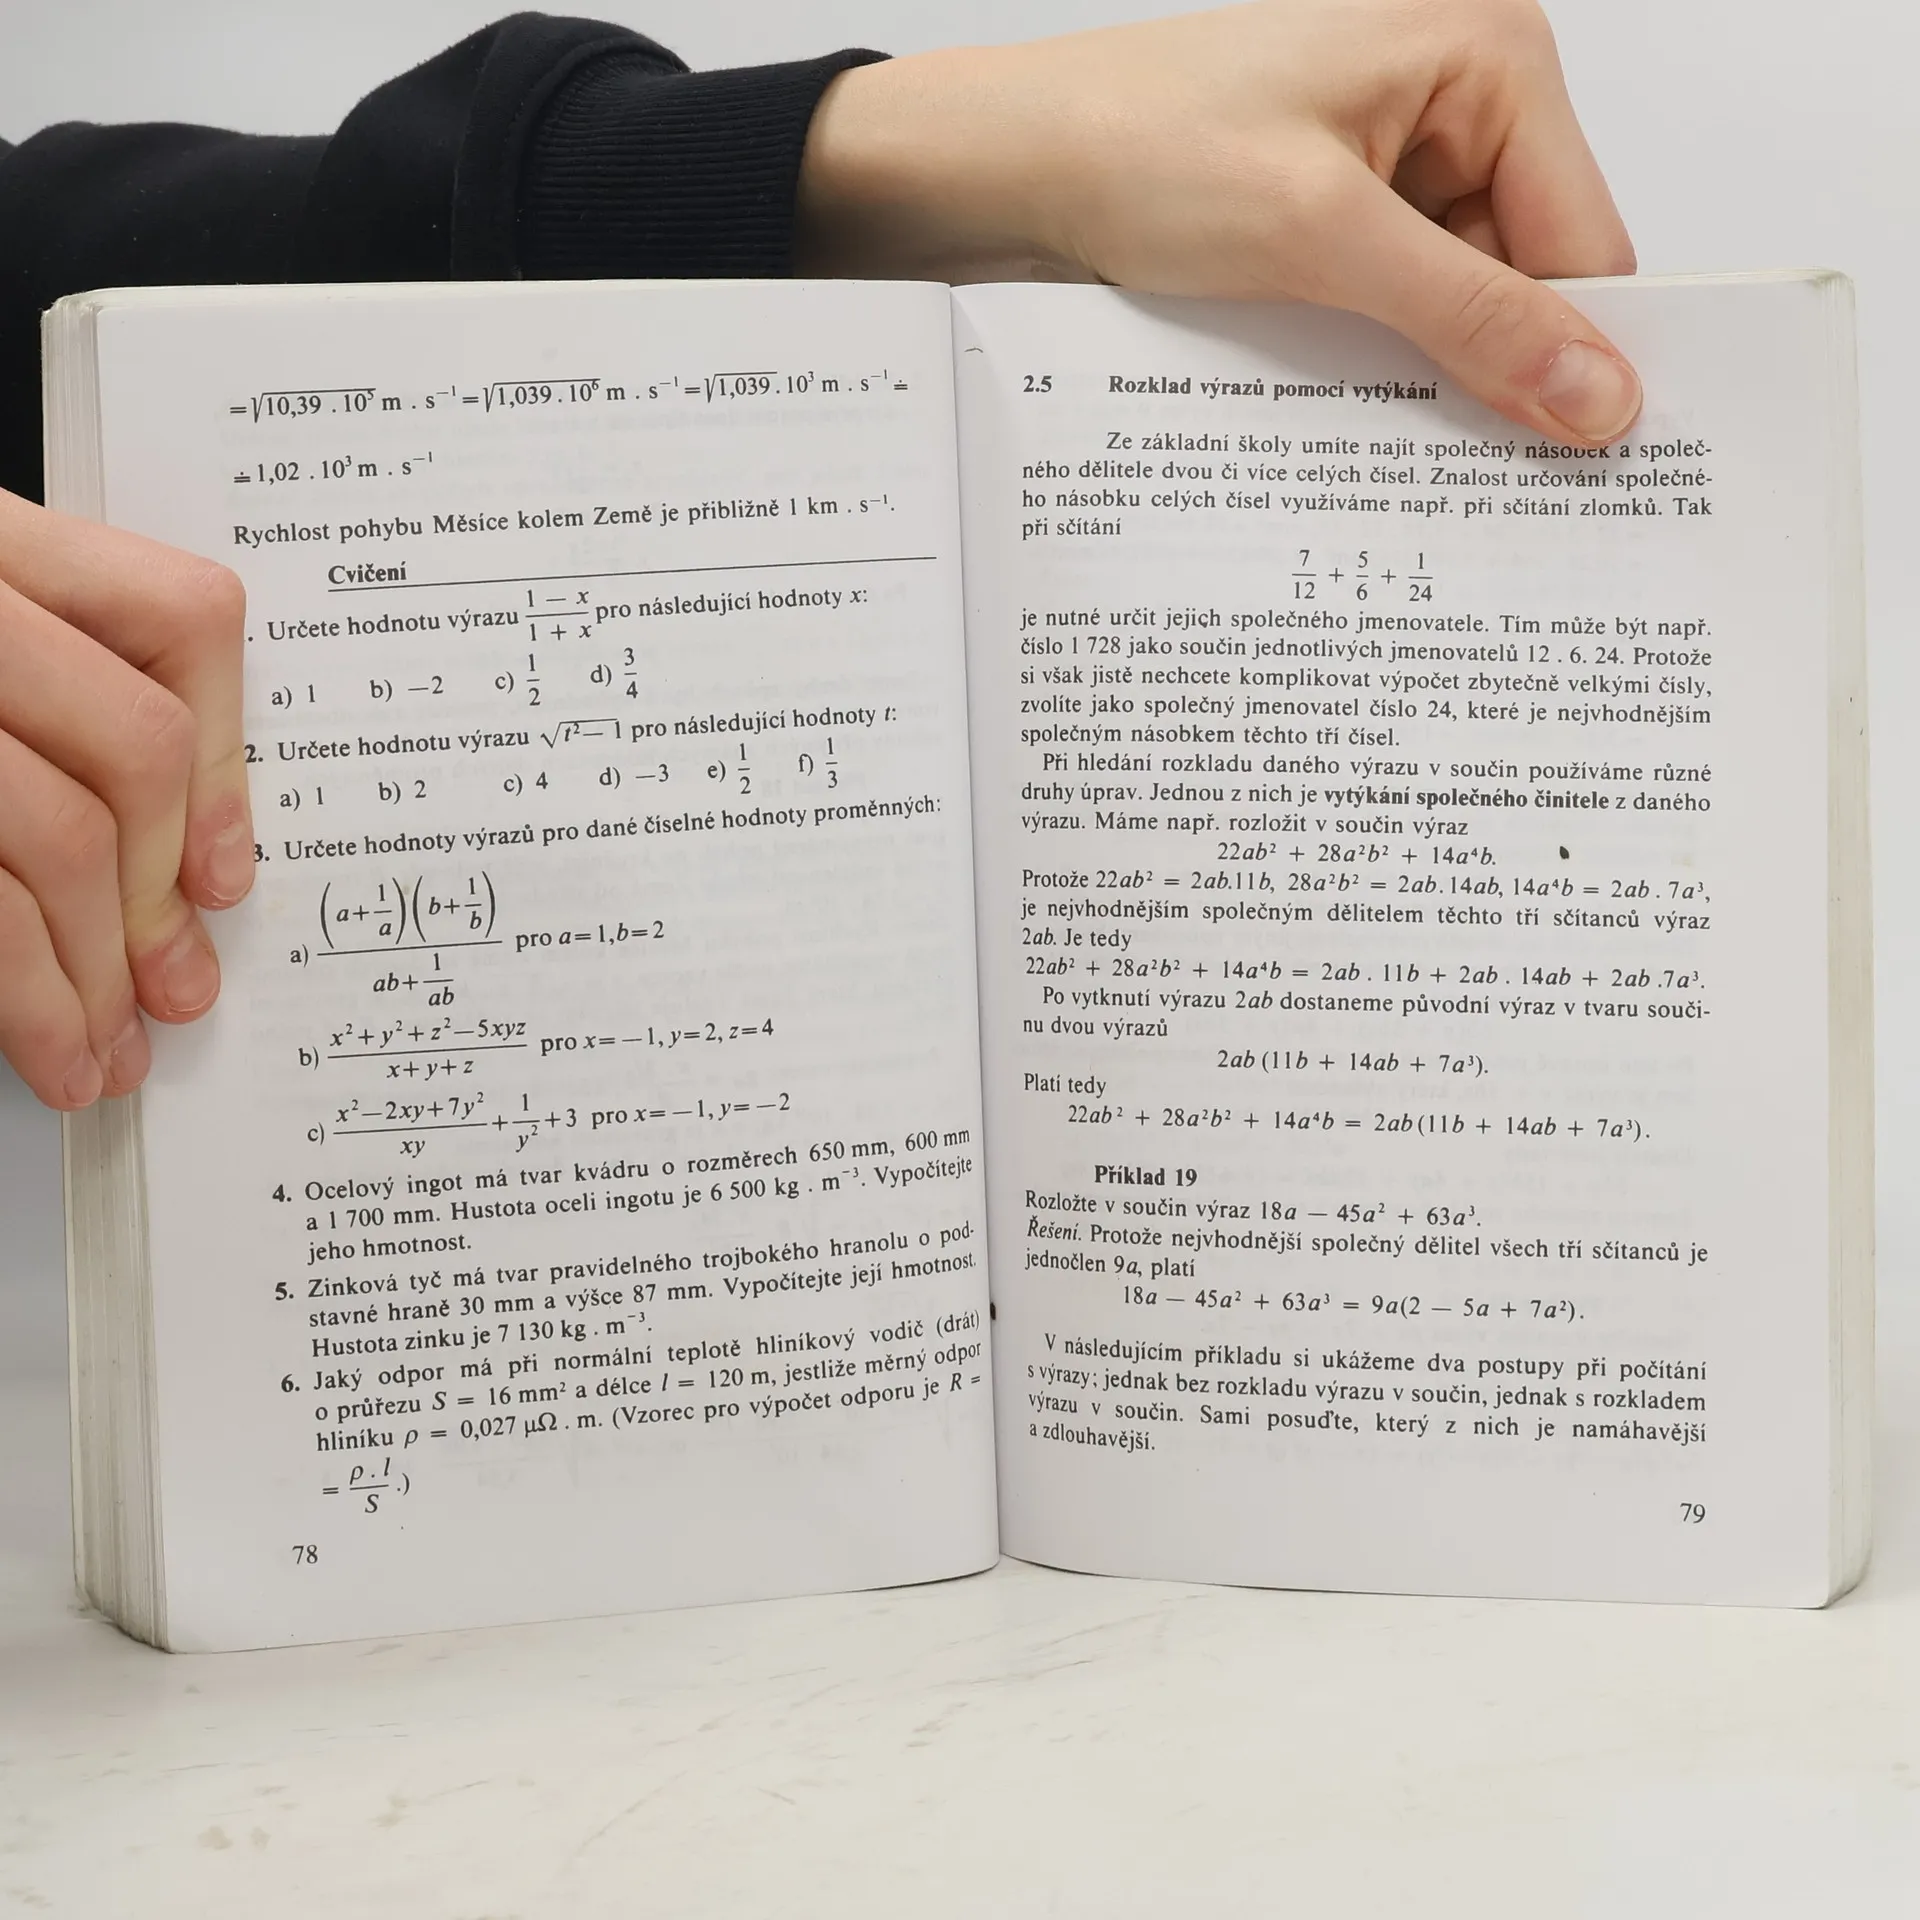 =√10,39 . 10⁵ m . s⁻¹ = √1,039 . 10⁶ m . s⁻¹ = √1,039 . 10³ m . s⁻¹ ≐
≐ 1,02 . 10³ m . s⁻¹
Rychlost pohybu Měsíce kolem Země je přibližně 1 km . s⁻¹.
Cvičení
. Určete hodnotu výrazu (1 − x)/(1 + x) pro následující hodnoty x:
a) 1 b) −2 c) 1/2 d) 3/4
2. Určete hodnotu výrazu √t² − 1 pro následující hodnoty t:
a) 1 b) 2 c) 4 d) −3 e) 1/2 f) 1/3
3. Určete hodnoty výrazů pro dané číselné hodnoty proměnných:
a) ((a+1/a)(b+1/b))/(ab+1/ab) pro a=1,b=2
b) (x²+y²+z²−5xyz)/(x+y+z) pro x=−1,y=2,z=4
c) (x²−2xy+7y²)/(xy)+1/y²+3 pro x=−1,y=−2
4. Ocelový ingot má tvar kvádru o rozměrech 650 mm, 600 mm
a 1 700 mm. Hustota oceli ingotu je 6 500 kg . m⁻³. Vypočítejte
jeho hmotnost.
5. Zinková tyč má tvar pravidelného trojbokého hranolu o pod-
stavné hraně 30 mm a výšce 87 mm. Vypočítejte její hmotnost.
Hustota zinku je 7 130 kg . m⁻³.
6. Jaký odpor má při normální teplotě hliníkový vodič (drát)
o průřezu S = 16 mm² a délce l = 120 m, jestliže měrný odpor
hliníku ρ = 0,027 μΩ . m. (Vzorec pro výpočet odporu je R =
= ρ . l/S .)
78
2.5 Rozklad výrazů pomocí vytýkání
Ze základní školy umíte najít společný násobek a společ-
ného dělitele dvou či více celých čísel. Znalost určování společné-
ho násobku celých čísel využíváme např. při sčítání zlomků. Tak
při sčítání
7/12 + 5/6 + 1/24
je nutné určit jejich společného jmenovatele. Tím může být např.
číslo 1 728 jako součin jednotlivých jmenovatelů 12 . 6. 24. Protože
si však jistě nechcete komplikovat výpočet zbytečně velkými čísly,
zvolíte jako společný jmenovatel číslo 24, které je nejvhodnějším
společným násobkem těchto tří čísel.
Při hledání rozkladu daného výrazu v součin používáme různé
druhy úprav. Jednou z nich je vytýkání společného činitele z daného
výrazu. Máme např. rozložit v součin výraz
22ab² + 28a²b² + 14a⁴b.
Protože 22ab² = 2ab.11b, 28a²b² = 2ab.14ab, 14a⁴b = 2ab . 7a³,
je nejvhodnějším společným dělitelem těchto tří sčítanců výraz
2ab. Je tedy
22ab² + 28a²b² + 14a⁴b = 2ab . 11b + 2ab . 14ab + 2ab .7a³.
Po vytknutí výrazu 2ab dostaneme původní výraz v tvaru souči-
nu dvou výrazů
2ab (11b + 14ab + 7a³).
Platí tedy
22ab² + 28a²b² + 14a⁴b = 2ab(11b + 14ab + 7a³).
Příklad 19
Rozložte v součin výraz 18a — 45a² + 63a³.
Řešení. Protože nejvhodnější společný dělitel všech tří sčítanců je
jednočlen 9a, platí
18a — 45a² + 63a³ = 9a(2 — 5a + 7a²).
V následujícím příkladu si ukážeme dva postupy při počítání
s výrazy; jednak bez rozkladu výrazu v součin, jednak s rozkladem
výrazu v součin. Sami posuďte, který z nich je namáhavější
a zdlouhavější.
79